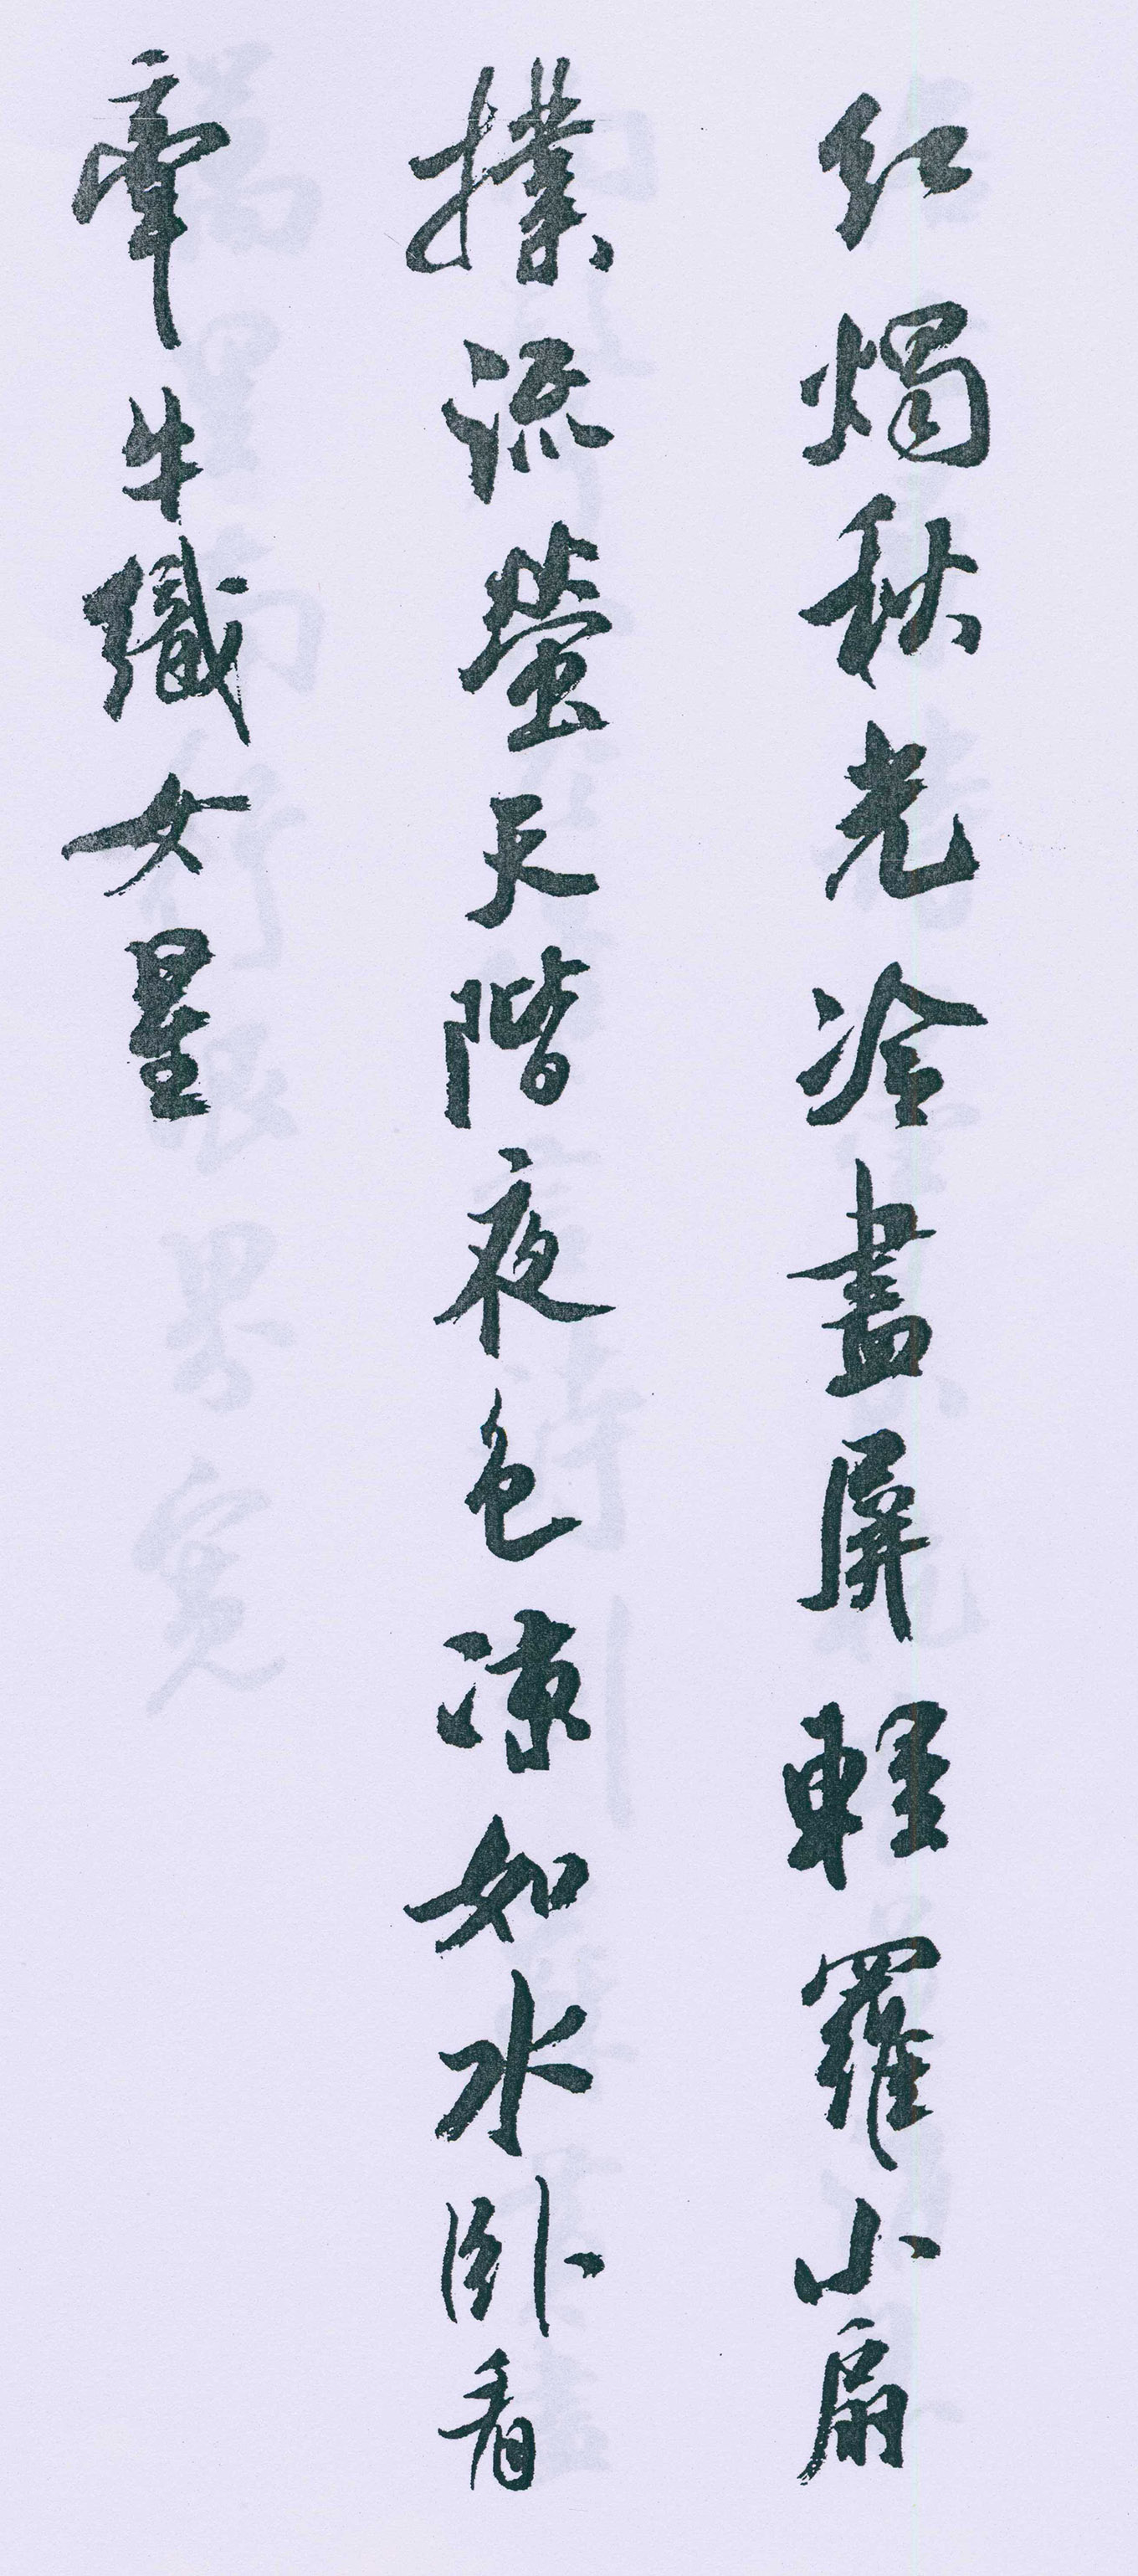 紅燭秋光冷畫屏輕羅小扇
撲流螢天階夜色凉如水卧看
牽牛織女星